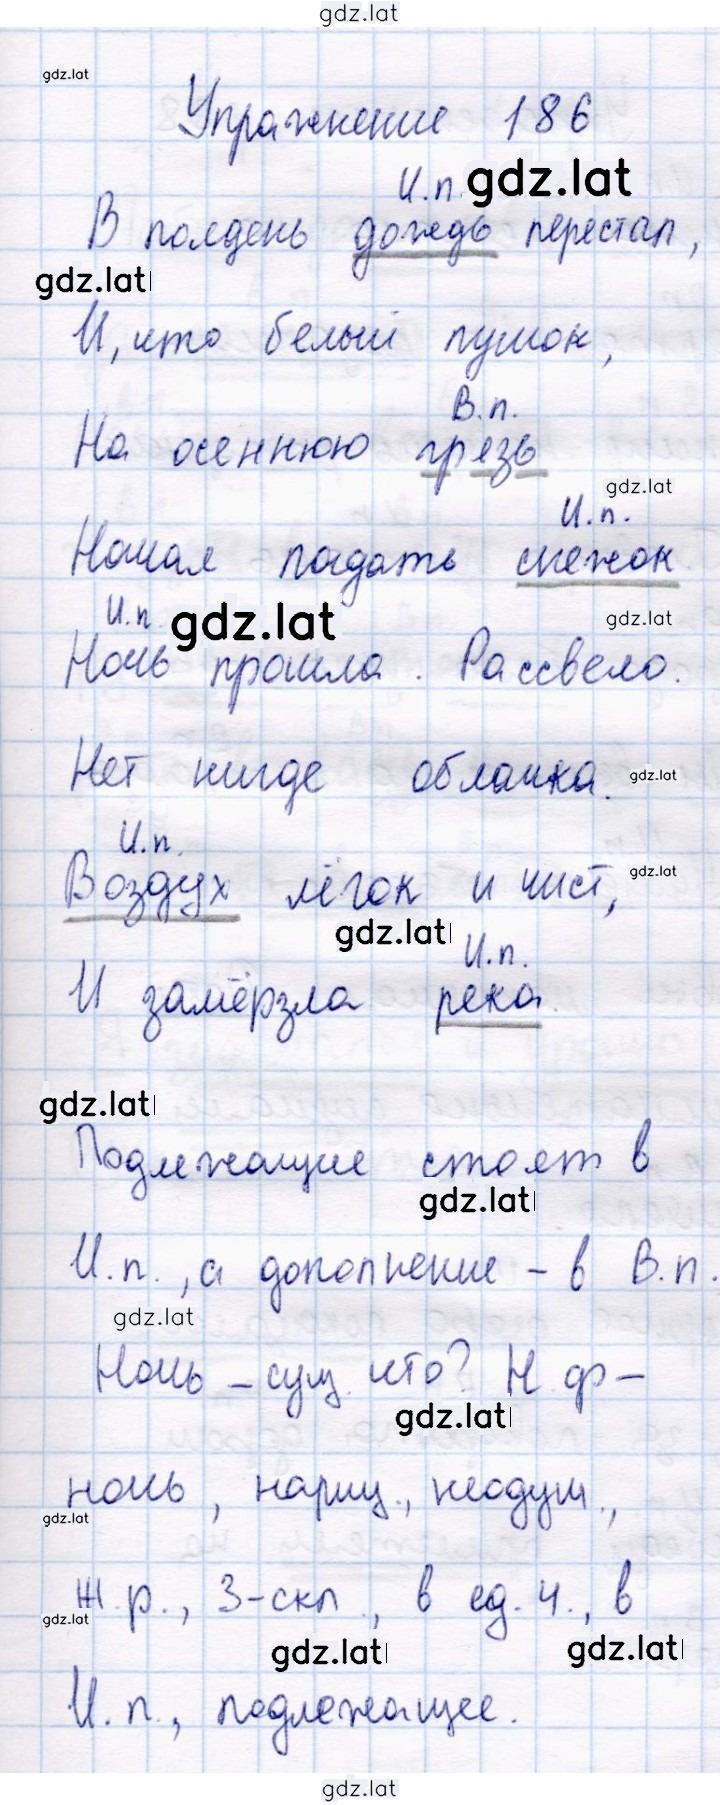 gdz.lat
gdz.lat
Упражнение 186
И.п. gdz.lat
В полдень дождь перестал,
gdz.lat
И, что белый пушок,
В.п.
На осеннюю грязь
gdz.lat
И.п.
Начал падать снежок
И.п. gdz.lat gdz.lat
Ночь прошла. Рассвело.
Нет нигде облачка. gdz.lat
И.п.
Воздух лёгок и чист, gdz.lat
gdz.lat И.п.
И замёрзла река.
gdz.lat
Подлежащие стоят в
gdz.lat
И.п., а дополнение – в В.п.
gdz.lat
Ночь – сущ. что? Н.ф –
gdz.lat
ночь, нариц., неодуш.,
gdz.lat
ж.р., 3-скл., в ед.ч., в
gdz.lat
gdz.lat gdz.lat
И.п., подлежащее.
gdz.lat